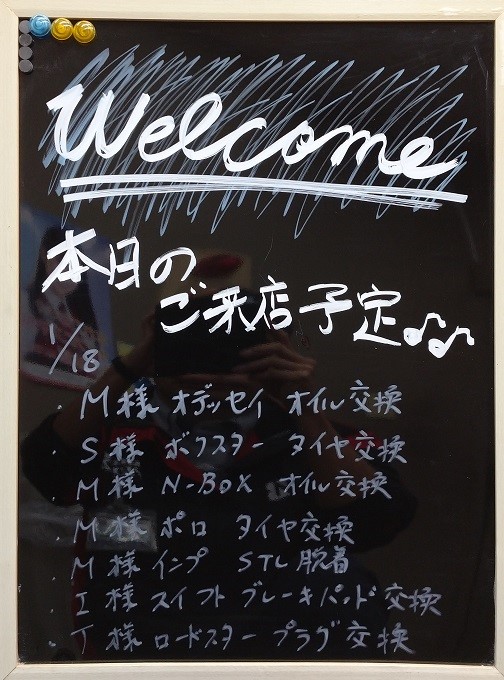 Welcome
本日の
ご来店予定♪♫
1/18
・M様 オデッセイ オイル交換
・S様 ボクスター タイヤ交換
・M様 N-BOX オイル交換
・M様 ポロ タイヤ交換
・M様 インプ STL脱着
・I様 スイフト ブレーキパッド交換
・T様 ロードスター プラグ交換